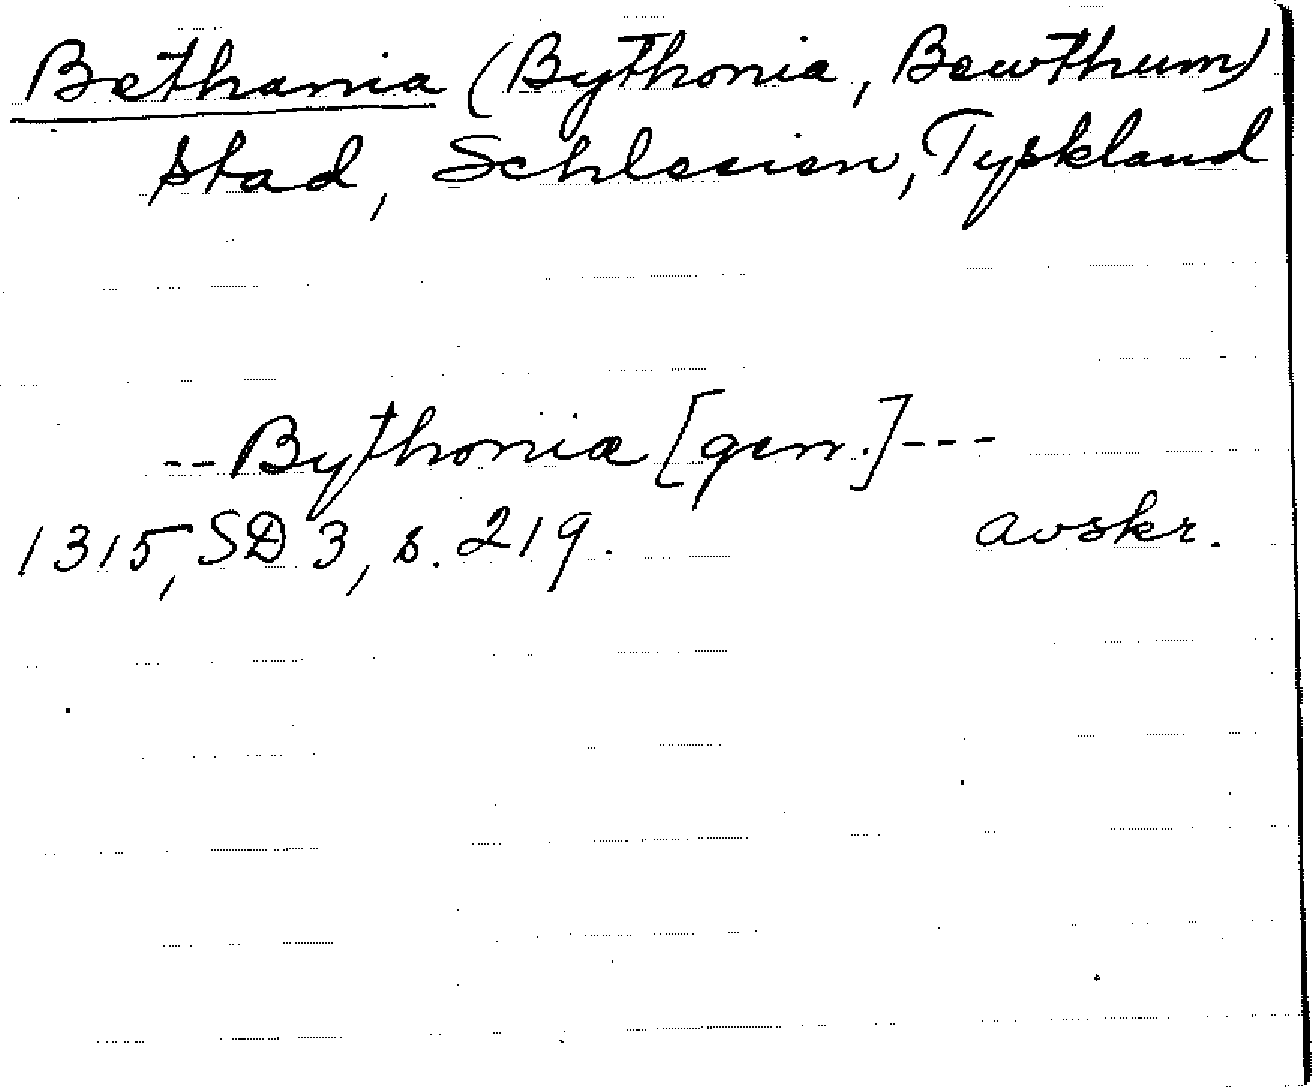 Bethania (Bythonia, Bewthum)
stad, Schlesien, Tyskland
--Bythonia [gen.]---
1315, SD 3, s. 219. avskr.